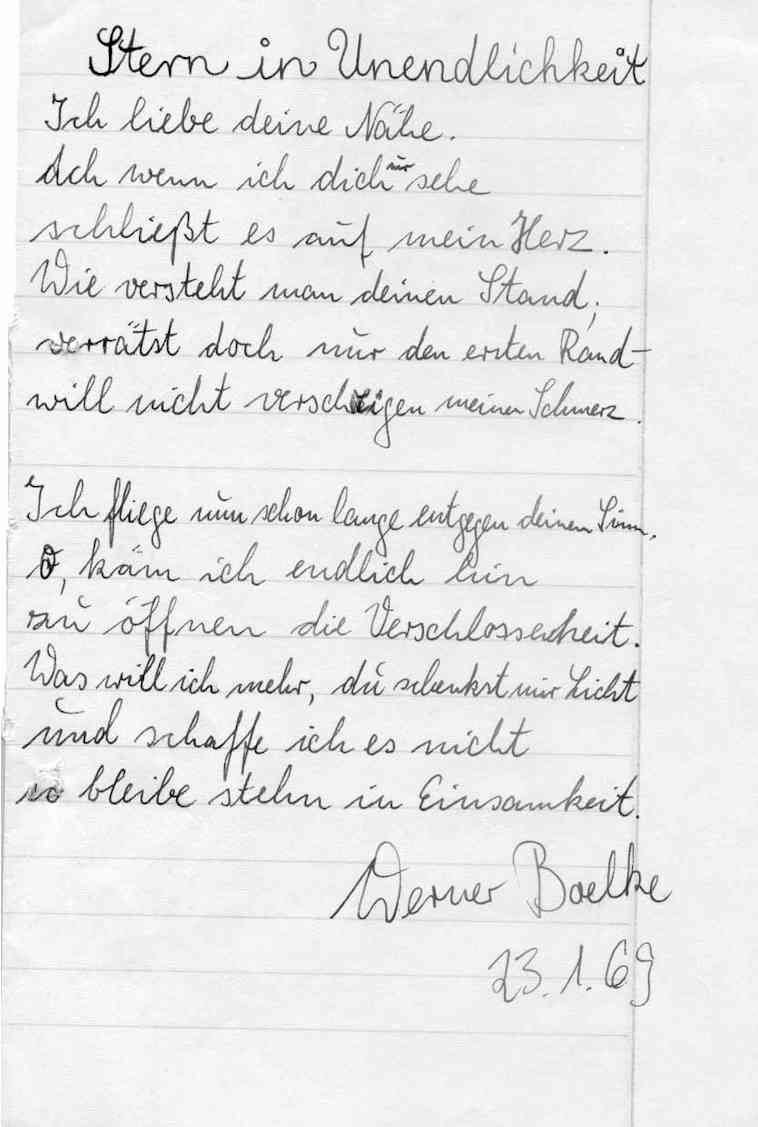 Stern in Unendlichkeit
Ich liebe deine Nähe.
Ach wenn ich dich nur sehe
schließt es auf mein Herz.
Wie versteht man deinen Stand,
verrätst doch nur den ersten Rand -
will nicht verscheigen meinen Schmerz.
Ich fliege nun schon lange entgegen deinem Sinn.
O, käm ich endlich hin
zu öffnen die Verschlossenheit.
Was will ich mehr, du schenkst mir Licht
und schaffe ich es nicht
so bleibe stehn in Einsamkeit.
Werner Boelke
23.1.69